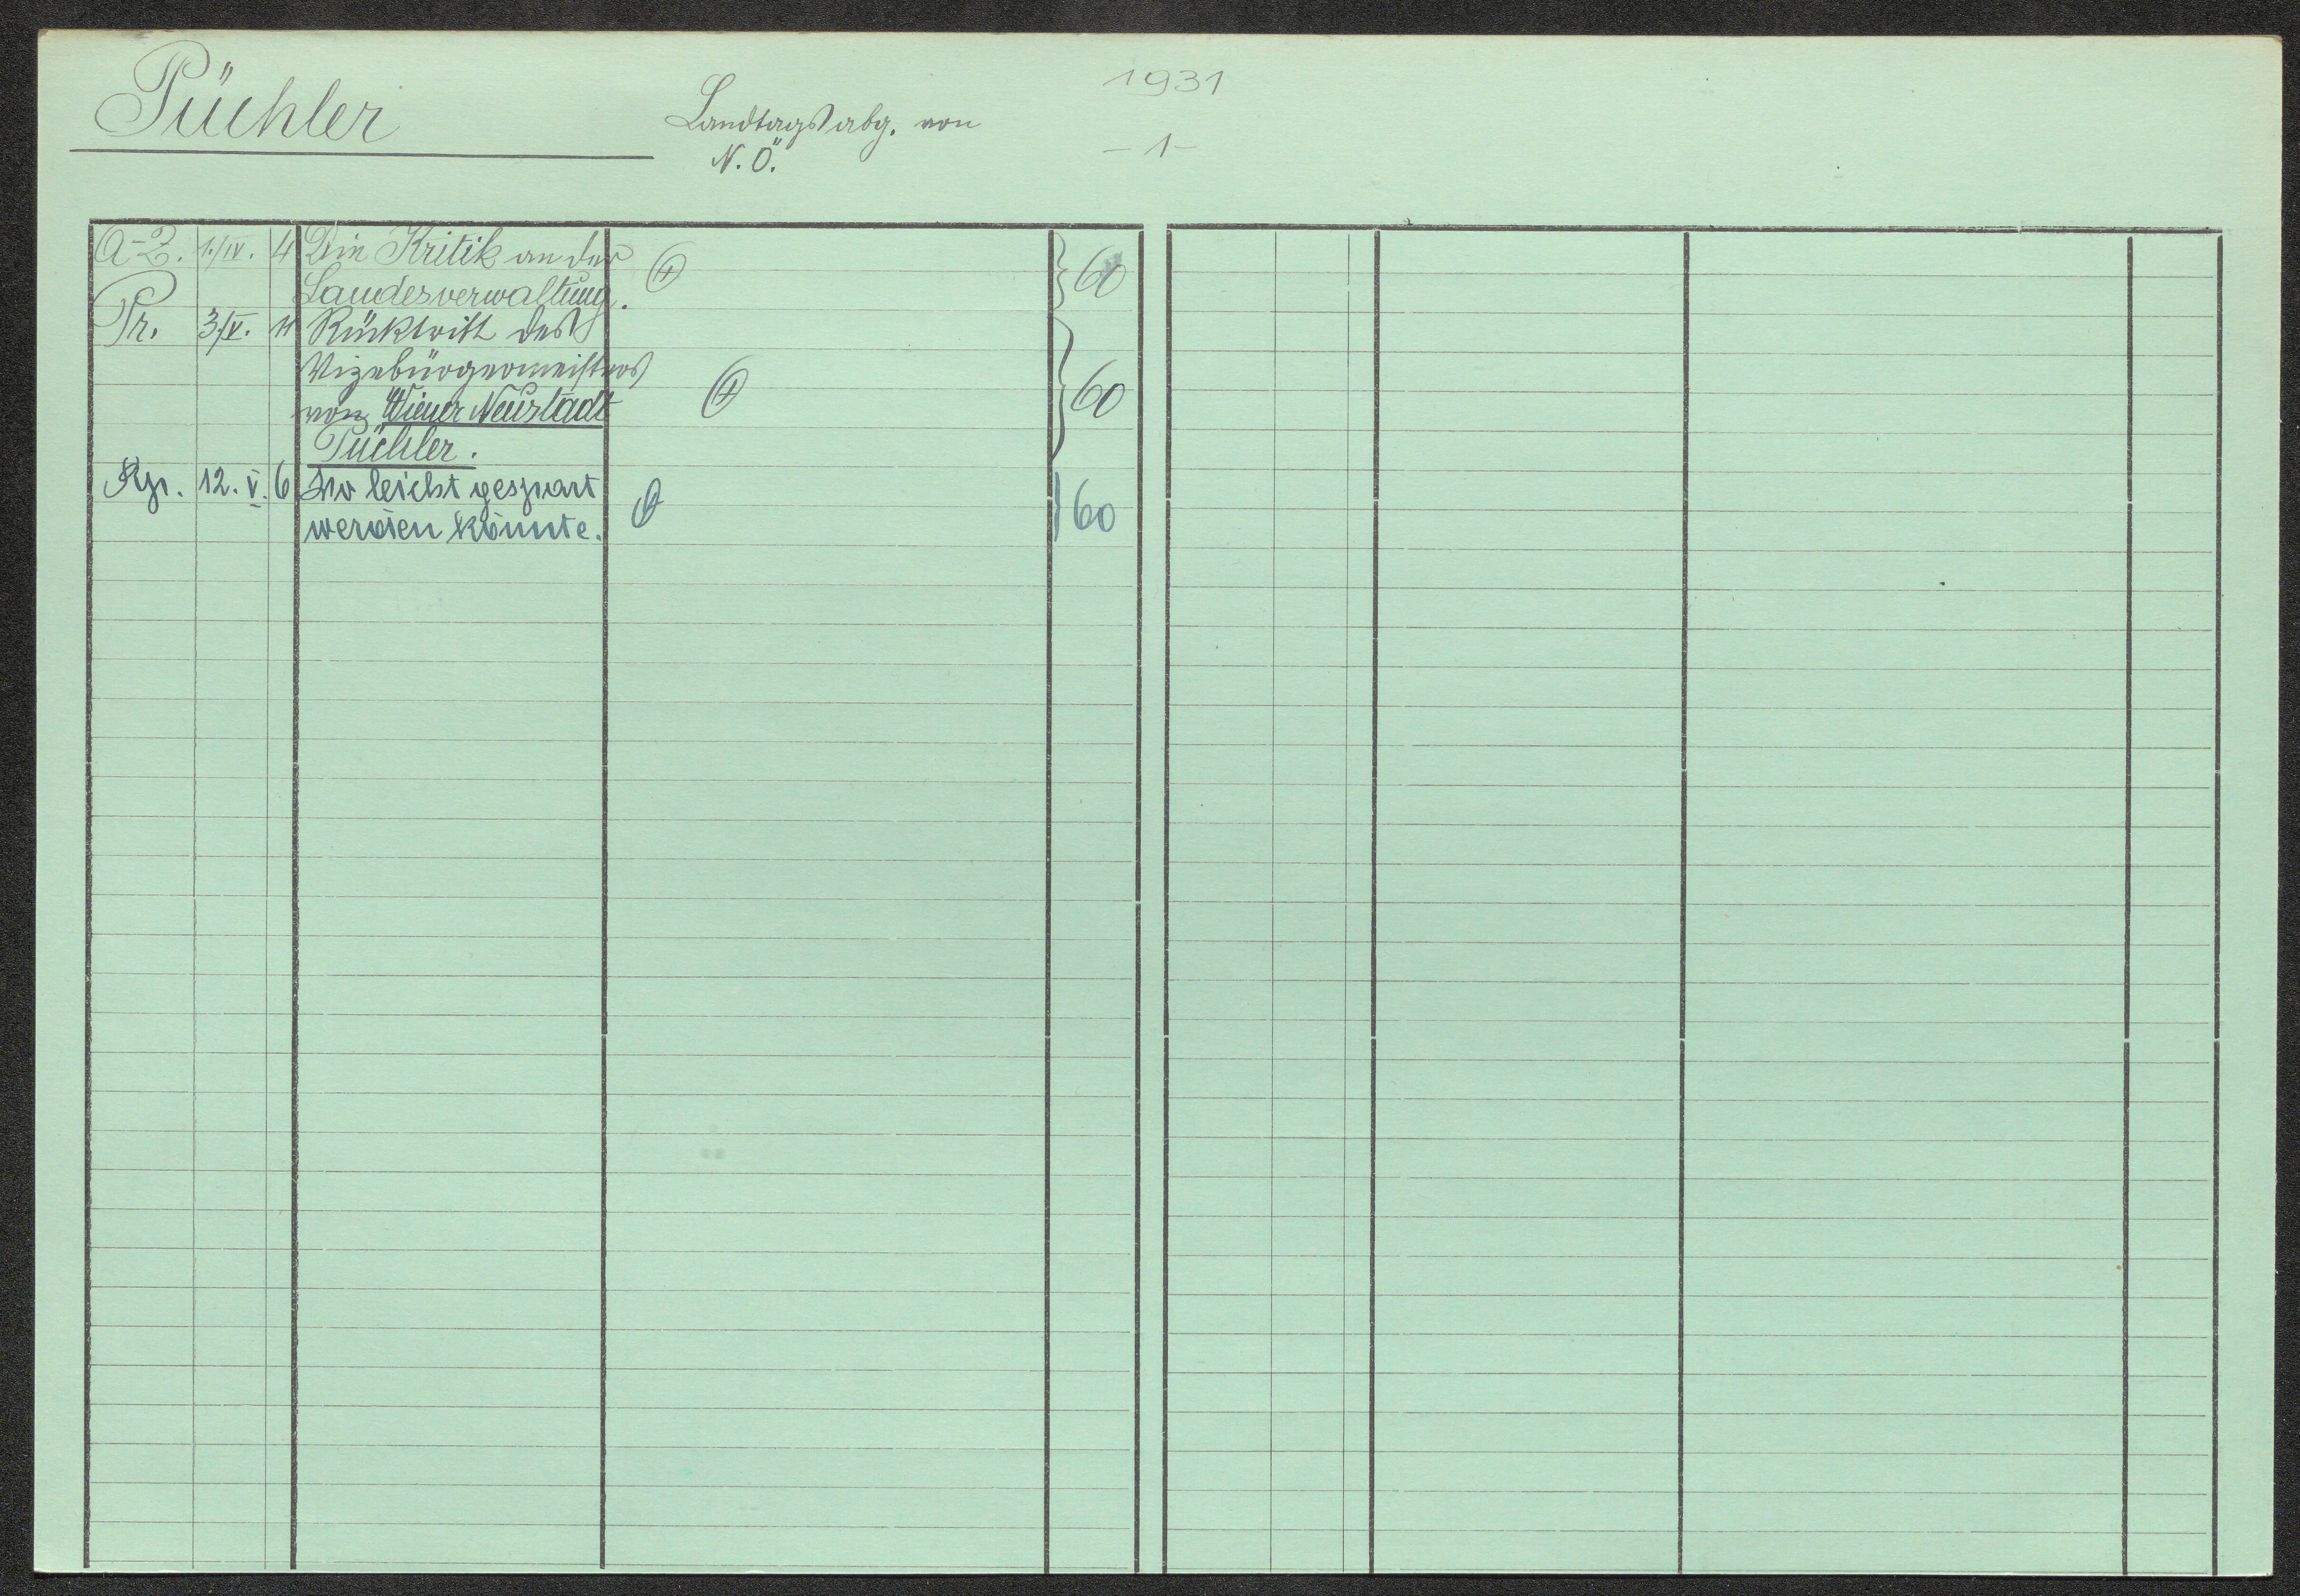 1931
Püchler
Landtagsabg. von
N. Ö.
- 1 -
A-Z. 1./IV. 4 Die Kritik an der 60
Landesverwaltung.
Pr. 3/V. 11 Rücktritt des
Vizebürgermeisters
von Wiener Neustadt 60
Püchler.
12. V. 6 Wo leicht gespart
werden könnte. 60